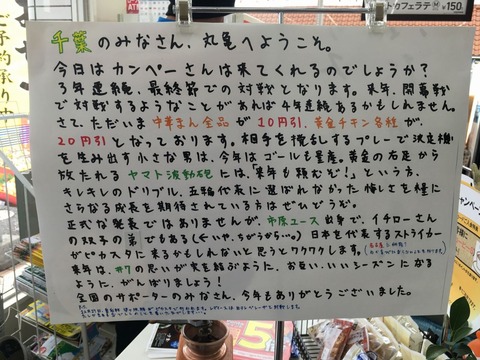 千葉のみなさん、丸亀へようこそ。
今日はカンペーさんは来てくれるのでしょうか？
3年連続、最終節での対戦となります。来年、開幕戦
で対戦するようなことがあれば4年連続あるかもしれません。
さて、ただいま中華まん全品が10円引、黄金チキン各種が
20円引となっております。相手を撹乱するプレーで決定機
を生み出す小さな男は、今年はゴールも量産。黄金の右足から
放たれるヤマト波動砲には、「来年も頼むぞ!」という方、
キレキレのドリブル、五輪代表に選ばれなかった悔しさを糧に
さらなる成長を期待されている方はぜひどうぞ。
正式な発表ではありませんが、市原ユース出身で、イチローさん
の双子の弟でもある(←いや、ちがうから…。)日本を代表するストライカー
がピカスタに来るかもしれないと思うとワクワクします。
来年は、#7の思いが実を結ぶように、お互い、いいシーズンになる
ように、がんばりましょう!
全国のサポーターのみなさん、今年もありがとうございました。
¥150